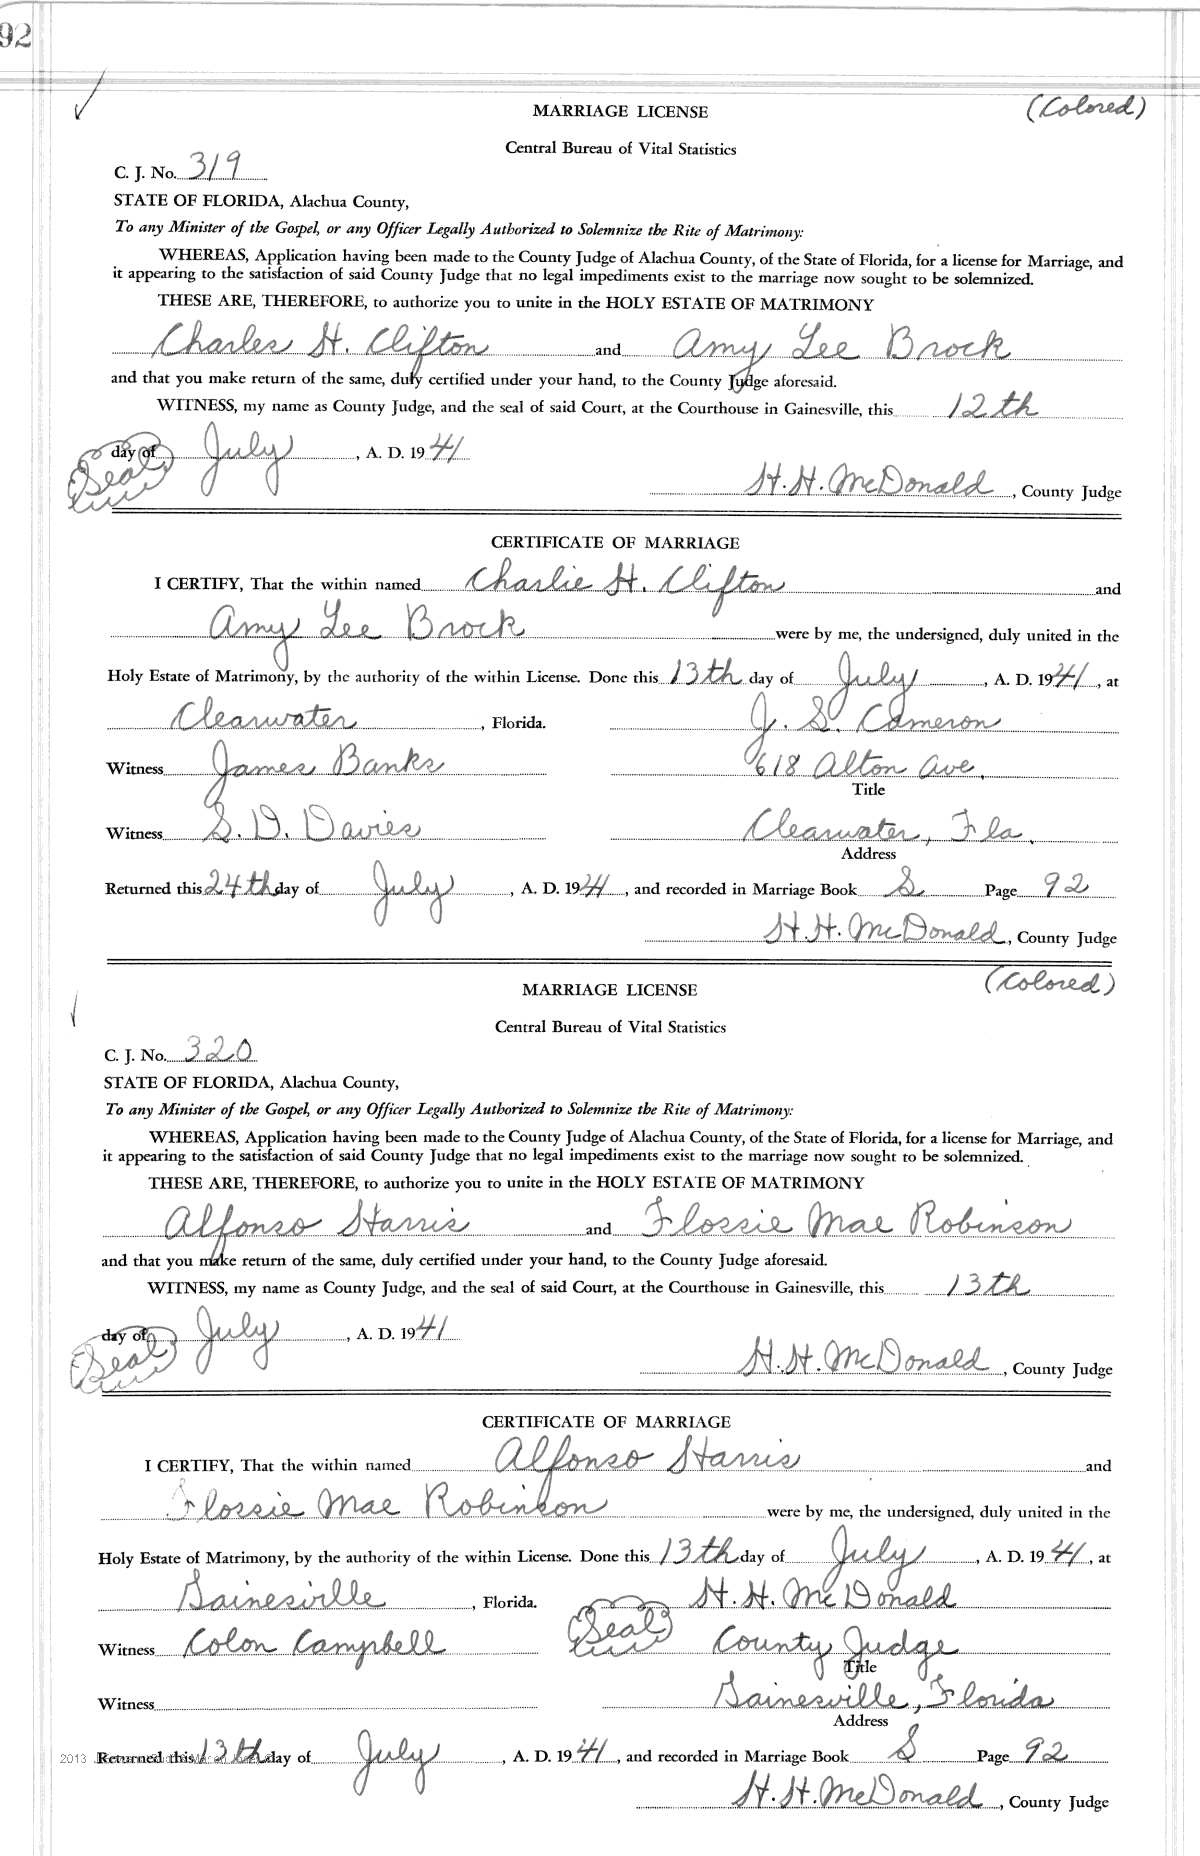 92
MARRIAGE LICENSE (Colored)
Central Bureau of Vital Statistics
C. J. No. 319
STATE OF FLORIDA, Alachua County,
To any Minister of the Gospel, or any Officer Legally Authorized to Solemnize the Rite of Matrimony:
WHEREAS, Application having been made to the County Judge of Alachua County, of the State of Florida, for a license for Marriage, and
it appearing to the satisfaction of said County Judge that no legal impediments exist to the marriage now sought to be solemnized.
THESE ARE, THEREFORE, to authorize you to unite in the HOLY ESTATE OF MATRIMONY
Charles H. Clifton and Amy Lee Brock
and that you make return of the same, duly certified under your hand, to the County Judge aforesaid.
WITNESS, my name as County Judge, and the seal of said Court, at the Courthouse in Gainesville, this 12th
day of July, A. D. 1941
(Seal) H. H. McDonald, County Judge
CERTIFICATE OF MARRIAGE
I CERTIFY, That the within named Charlie H. Clifton and
Amy Lee Brock were by me, the undersigned, duly united in the
Holy Estate of Matrimony, by the authority of the within License. Done this 13th day of July, A. D. 1941, at
Clearwater, Florida. J. S. Cameron
Witness James Banks 618 Alton Ave.
Title
Witness S. D. Davies Clearwater, Fla.
Address
Returned this 24th day of July, A. D. 1941, and recorded in Marriage Book S Page 92
H. H. McDonald, County Judge
MARRIAGE LICENSE (Colored)
Central Bureau of Vital Statistics
C. J. No. 320
STATE OF FLORIDA, Alachua County,
To any Minister of the Gospel, or any Officer Legally Authorized to Solemnize the Rite of Matrimony:
WHEREAS, Application having been made to the County Judge of Alachua County, of the State of Florida, for a license for Marriage, and
it appearing to the satisfaction of said County Judge that no legal impediments exist to the marriage now sought to be solemnized.
THESE ARE, THEREFORE, to authorize you to unite in the HOLY ESTATE OF MATRIMONY
Alfonso Harris and Flossie Mae Robinson
and that you make return of the same, duly certified under your hand, to the County Judge aforesaid.
WITNESS, my name as County Judge, and the seal of said Court, at the Courthouse in Gainesville, this 13th
day of July, A. D. 1941
(Seal) H. H. McDonald, County Judge
CERTIFICATE OF MARRIAGE
I CERTIFY, That the within named Alfonso Harris and
Flossie Mae Robinson were by me, the undersigned, duly united in the
Holy Estate of Matrimony, by the authority of the within License. Done this 13th day of July, A. D. 1941, at
Gainesville, Florida. H. H. McDonald
Witness Colon Campbell (Seal) County Judge
Title
Witness Gainesville, Florida
Address
2013 Returned this 13th day of July, A. D. 1941, and recorded in Marriage Book S Page 92
H. H. McDonald, County Judge